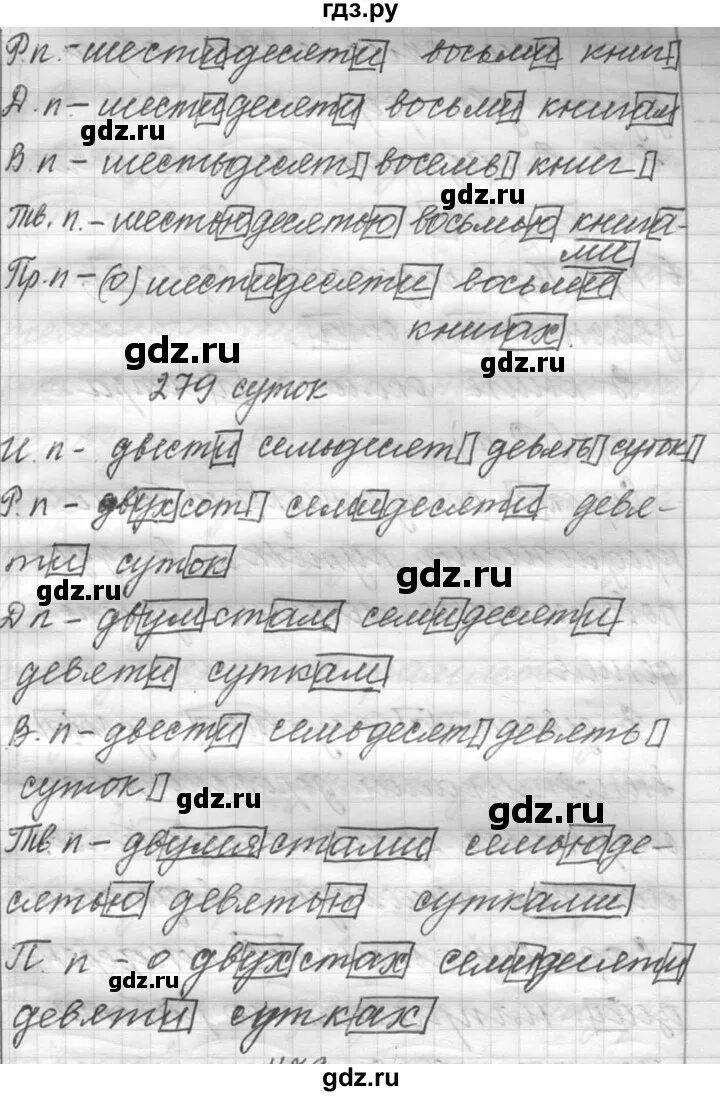 гдз.ру
Р.п. - шестидесяти восьми книг
Д.п - шестидесяти восьми книгам
gdz.ru
В п - шестьдесят восемь книг
gdz.ru
Тв. п. - шестьюдесятью восьмью книга-
ми
Пр.п - (о) шестидесяти восьми
книгах.
gdz.ru
gdz.ru
279 суток
И. п - двести семьдесят девять суток
Р. п - двухсот семидесяти девя-
ти суток
gdz.ru
gdz.ru
Д п - двумстам семидесяти
девяти суткам
В. п - двести семьдесят девять
суток
gdz.ru
gdz.ru
Тв. п - двумястами семьюде-
сятью девятью сутками
П. п - о двухстах семидесяти
gdz.ru
девяти сутках
gdz.ru